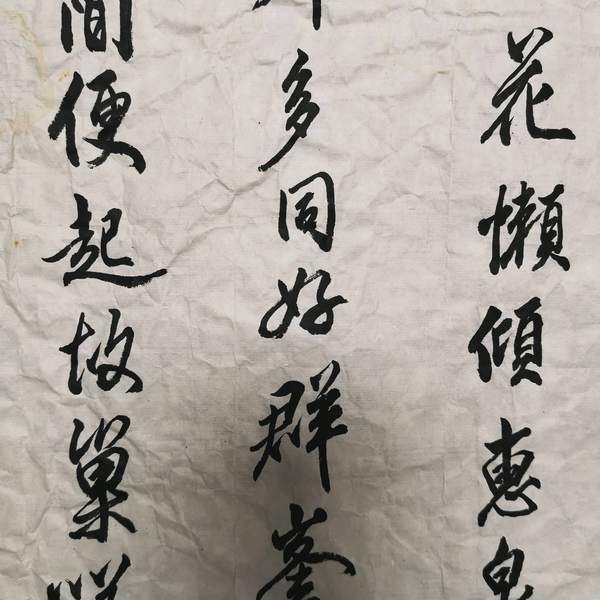 花懒倾惠泉
多同好群峯
間便起故巢